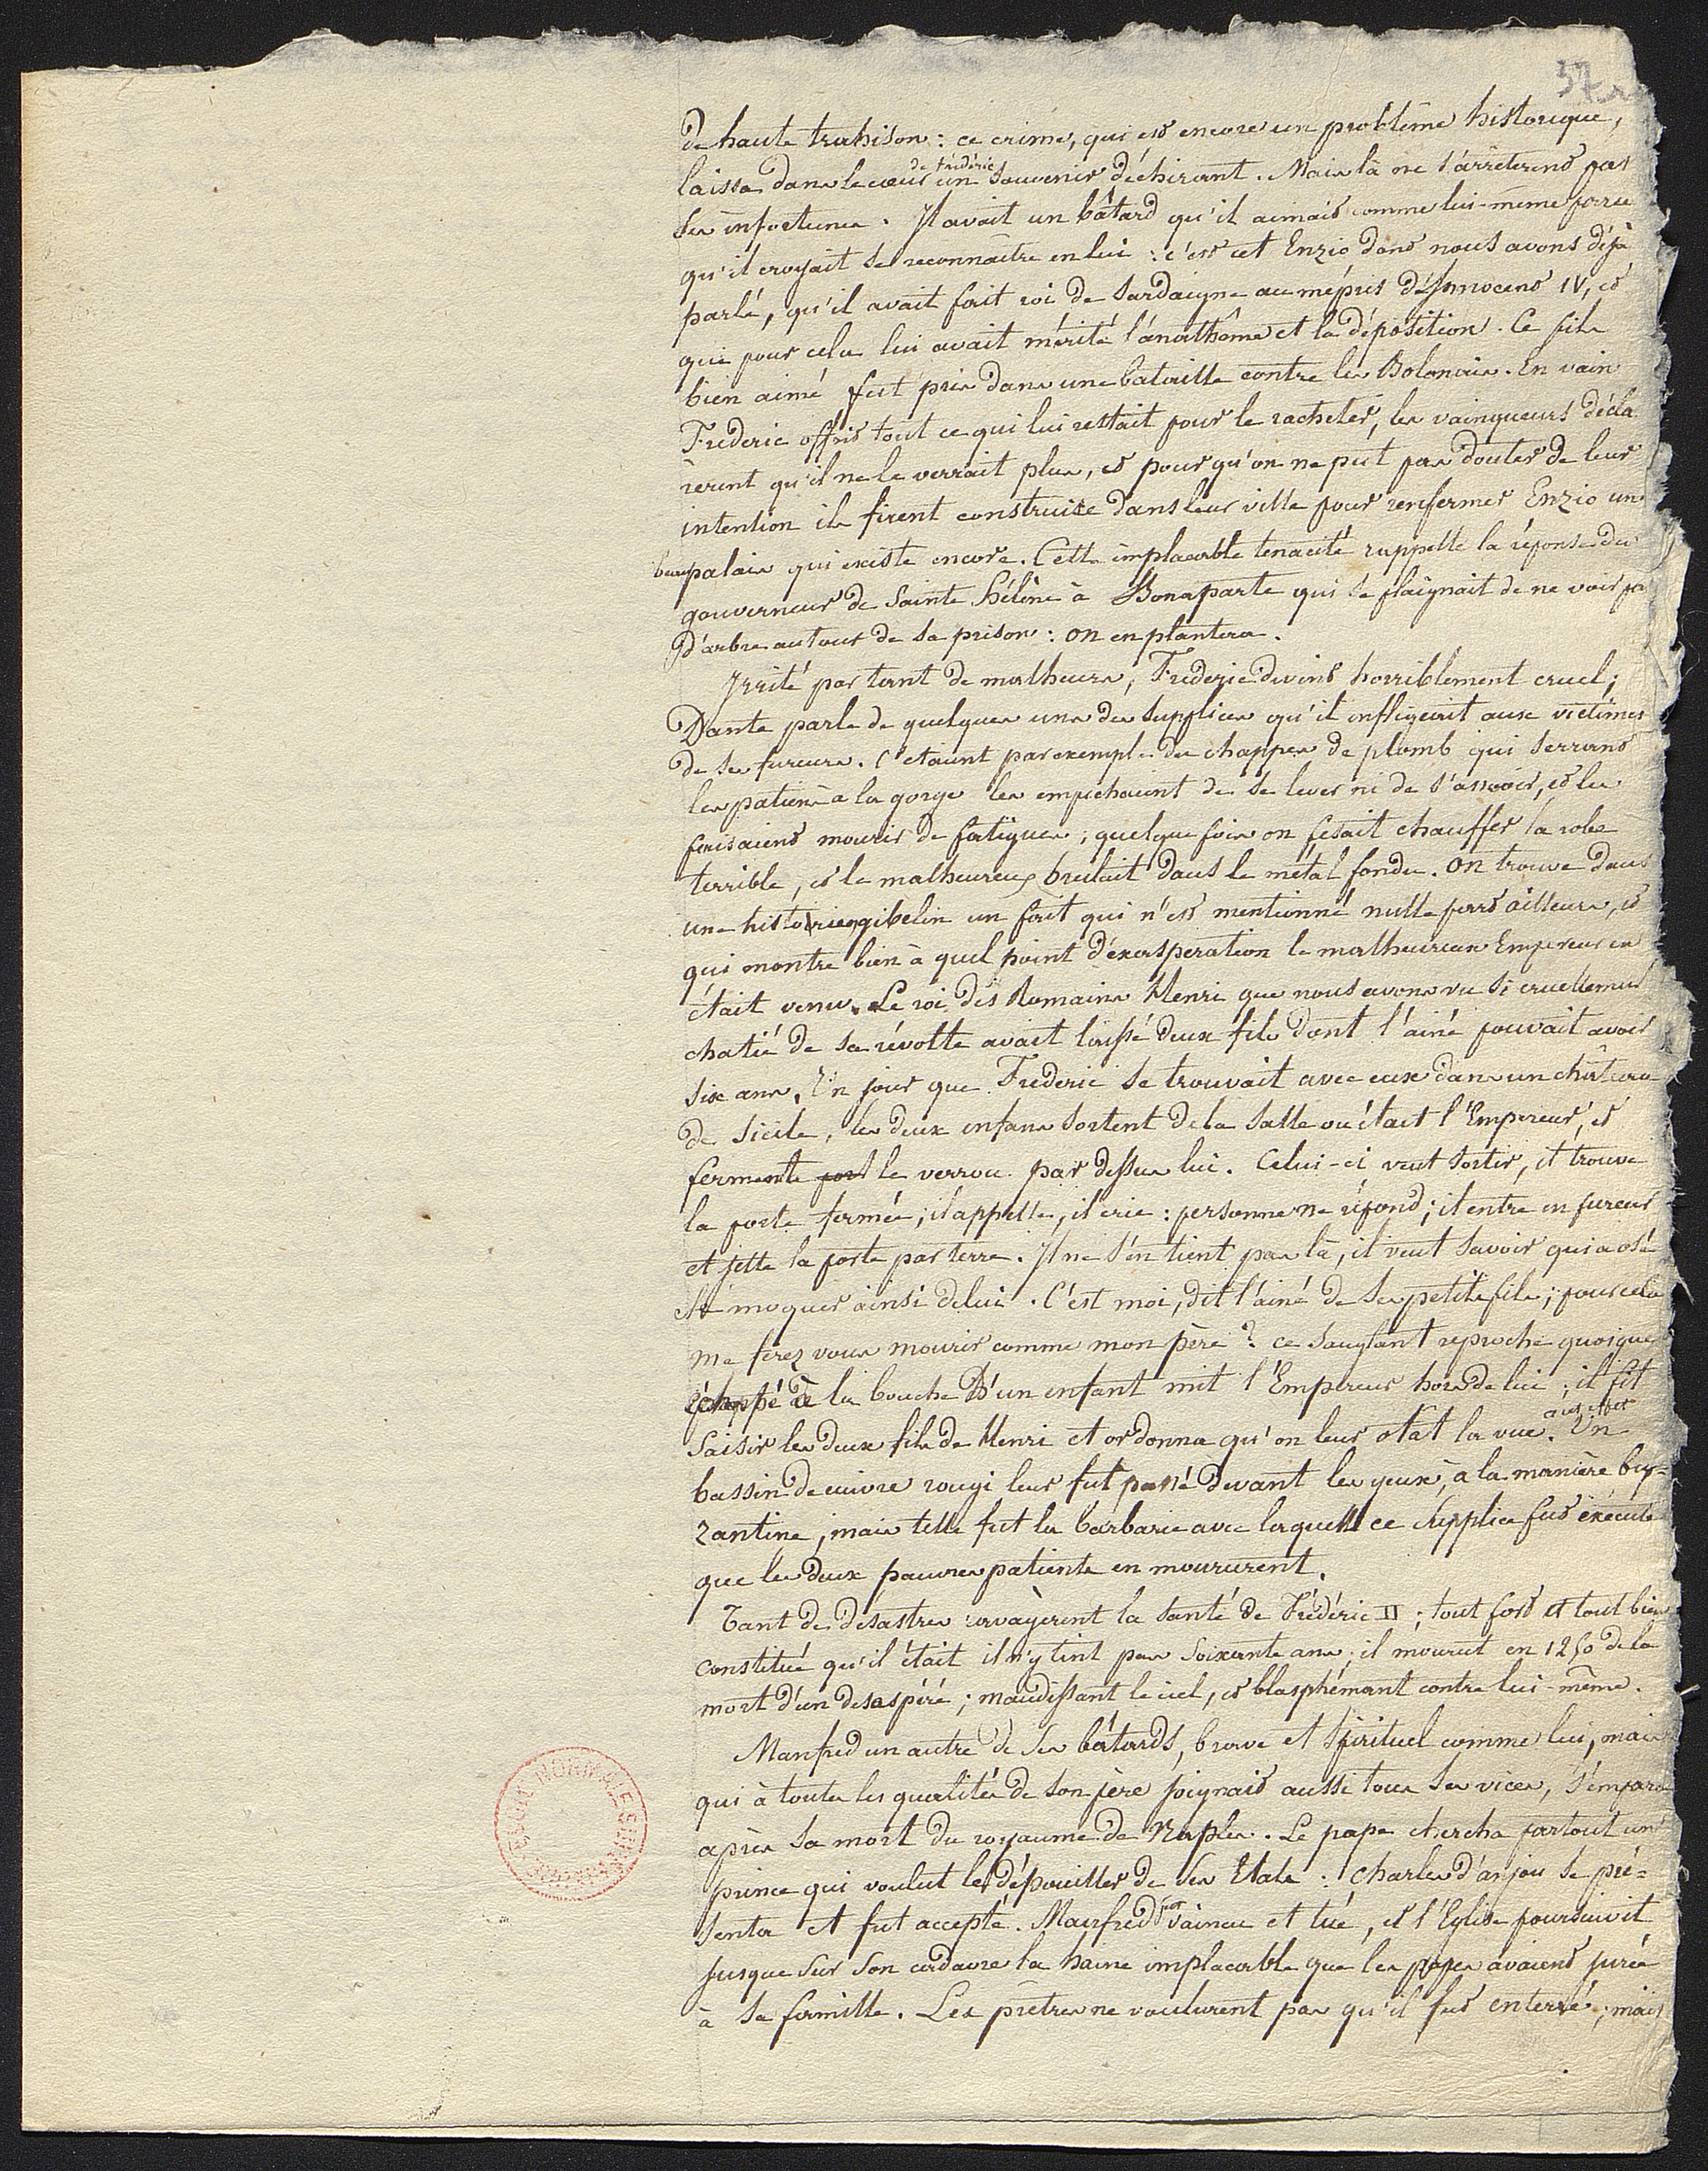 37
de haute trahison : ce crime, qui est encore un problême historique,
laissa dans le cœur de Frédéric un souvenir déchirant. Mais là ne s'arrêterent pas
ses infortunes. Il avait un bâtard qu'il aimait comme lui-même parce
qu'il croyait se reconnaitre en lui : c'est cet Enzio dont nous avons déjà
parlé, qu'il avait fait roi de Sardaigne au mépris d'Innocent IV, et
qui pour cela lui avait mérité l'anathême et la déposition. Ce fils
bien aimé fut pris dans une bataille contre les Bolonais. En vain
Frederic offrit tout ce qui lui restait pour le racheter, les vainqueurs décla
rerent qu'il ne le verrait plus, et pour qu'on ne put pas douter de leur
intention ils firent construire dans leur ville pour renfermer Enzio un
beau palais qui existe encore. Cette implacable tenacité rappelle la réponse du
gouverneur de Sainte Hélène à Bonaparte qui se plaignait de ne voir pas
d'arbres autour de sa prison : on en plantera.
Irrité par tant de malheurs, Frederic devint horriblement cruel ;
Dante parle de quelques uns des supplices qu'il infligeait aux victimes
de ses fureurs. C'etaient par exemple des chappes de plomb qui serrant
les patiens à la gorge les empechaient de se lever ni de s'asseoir, et les
faisaient mourir de fatigues ; quelque fois on fesait chauffer la robe
terrible, et le malheureux brulait dans le métal fondu. On trouve dans
un historien gibelin un fait qui n'est mentionné nulle part ailleurs, et
qui montre bien à quel point d'éxasperation le malheureux Empereur en
était venu. Le roi des Romains Henri que nous avons vu si cruellement
chatié de sa révolte avait laissé deux fils dont l'ainé pouvait avoir
six ans. Un jour que Frederic se trouvait avec eux dans un château
de Sicile, les deux enfans sortent de la salle où était l'Empereur, et
ferment le verrou par dessus lui. Celui-ci veut sortir, et trouve
la porte fermée ; il appelle, il crie : personne ne répond ; il entre en fureur
et jette la porte par terre. Il ne s'en tient pas là, il veut savoir qui a osé
se moquer ainsi de lui. C'est moi, dit l'ainé de ses petits fils ; pour cela
me ferez vous mourir comme mon père ? ce sanglant reproche quoique
échappé à la bouche d'un enfant mit l'Empereur hors de lui ; il fit
saisir les deux fils de Henri et ordonna qu'on leur otât la vue. Un
bassin de cuivre rougi leur fut passé devant les yeux, à la manière by=
zantine, mais telle fut la barbarie avec laquelle ce supplice fut éxécuté
que les deux pauvres patients en moururent.
Tant de desastres ravagèrent la santé de Frédéric II ; tout fort et tout bien
constitué qu'il était il n'y tint pas soixante ans ; il mourut en 1250 de la
mort d'un desaspéré ; maudissant le ciel, et blasphémant contre lui-même.
Manfred un autre de ses bâtards, brave et spirituel comme lui, mais
qui à toutes les qualités de son père joignait aussi tous ses vices, s'empara
après sa mort du royaume de Naples. Le pape chercha partout un
prince qui voulut le dépouiller de ses Etats : Charles d'anjou se pré=
senta et fut accepté. Mainfred fut vaincu et tué, et l'Eglise poursuivit
jusque sur son cadavre la haine implacable que les papes avaient jurée
à sa famille. Les prêtres ne voulurent pas qu'il fut enterré ; mais